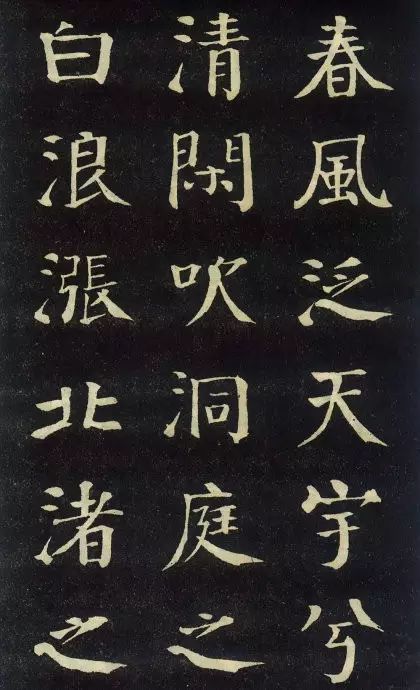 春風泛天宇兮
清閑吹洞庭之
白浪漲北渚之